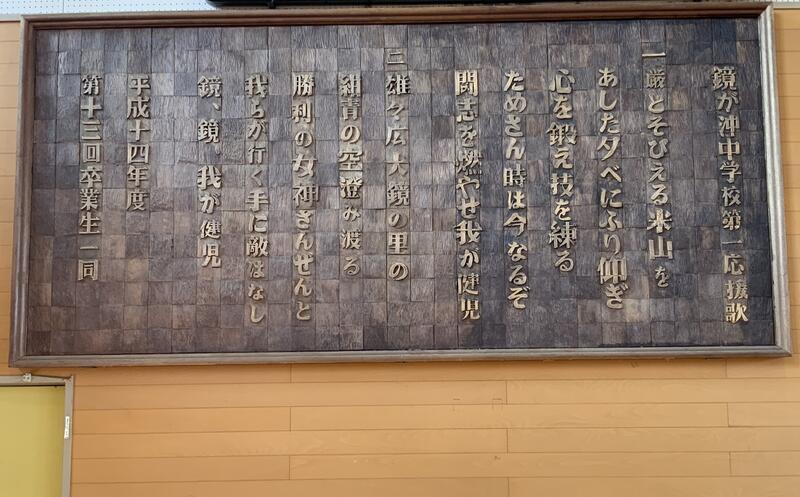 鏡が沖中学校第一応援歌
一 厳とそびえる米山を
あした夕べにふり仰ぎ
心を鍛え技を練る
ためさん時は今なるぞ
闘志を燃やせ我が健児
二 雄々広大鏡の里の
紺青の空澄み渡る
勝利の女神さんぜんと
我らが行く手に敵はなし
鏡、鏡、我が健児
平成十四年度
第十三回卒業生一同